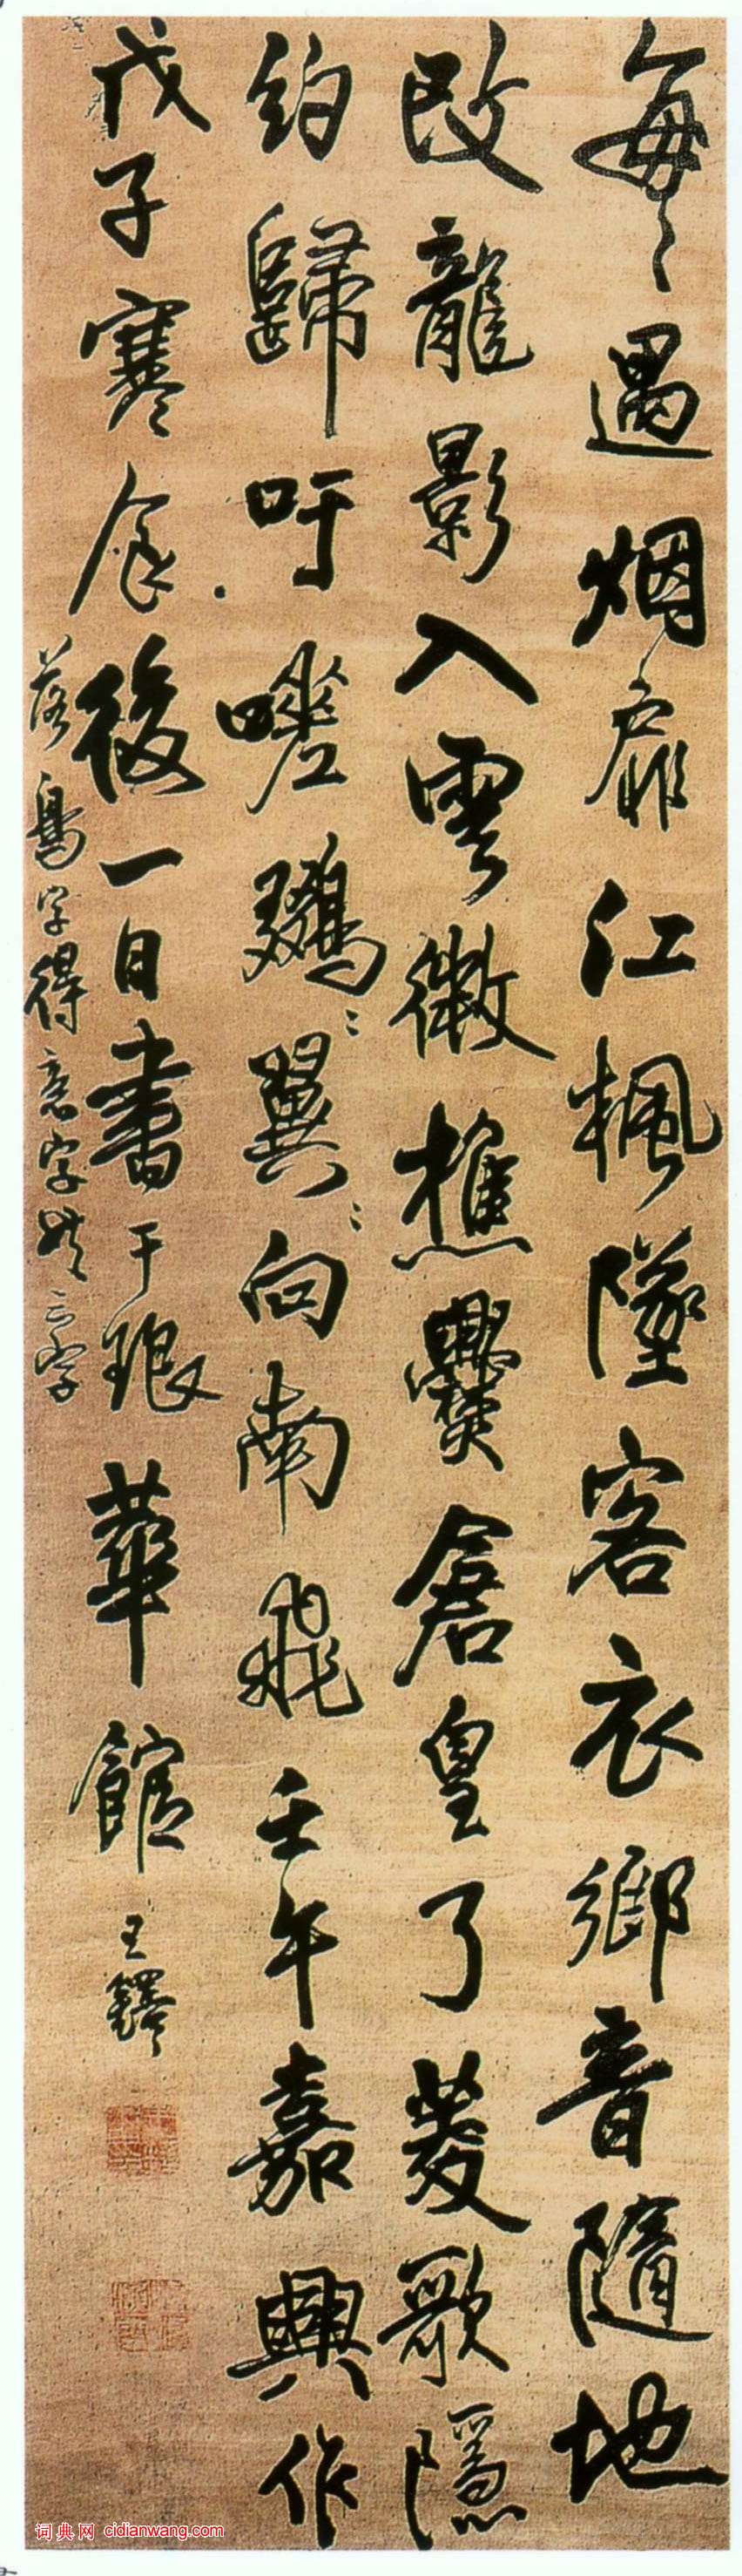 每〻遇烟扉江楓墜客衣鄉音隨地
改龍影入雲微樵爨倉皇了菱歌隱
約歸吁嗟鷄〻翼〻向南飛壬午嘉興作
戊子寒食後一日書于琅華館王鐸
落鳥字得意字共三字
词典网 cidianwang.com